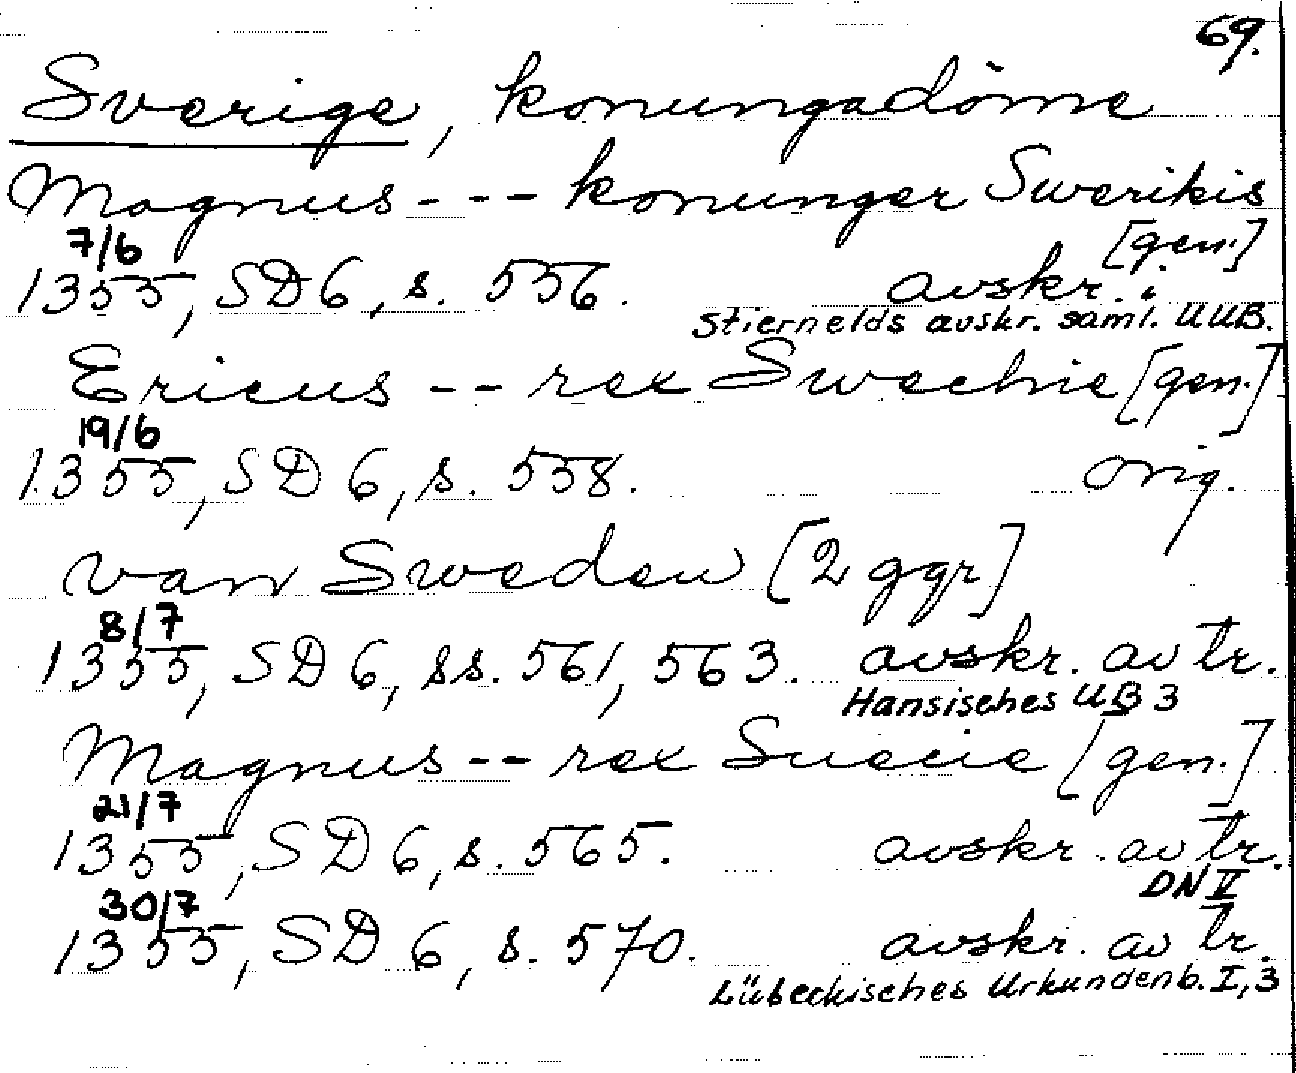 69.
Sverige, konungadöme
Magnus --- konunger Swerikis
[gen.]
7/6
1355, SD 6, s. 556. avskr. i
Stiernelds avskr. saml. UUB.
Ericus -- rex Swechie [gen.]
19/6
1355, SD 6, s. 558. orig.
van Sweden [2 ggr]
8/7
1355, SD 6, ss. 561, 563. avskr. av tr.
Hansisches UB 3
Magnus -- rex Suecie [gen.]
21/7
1355, SD 6, s. 565. avskr. av tr.
DN V
30/7
1355, SD 6, s. 570. avskr. av tr.
Lübeckisches Urkundenb. I, 3